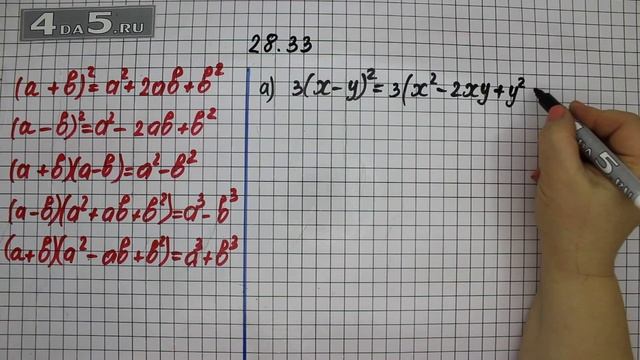 4DA5.RU
28.33
(a + b)² = a² + 2ab + b²
(a - b)² = a² - 2ab + b²
(a + b)(a - b) = a² - b²
(a - b)(a² + ab + b²) = a³ - b³
(a + b)(a² - ab + b²) = a³ + b³
а) 3(x - y)² = 3(x² - 2xy + y²